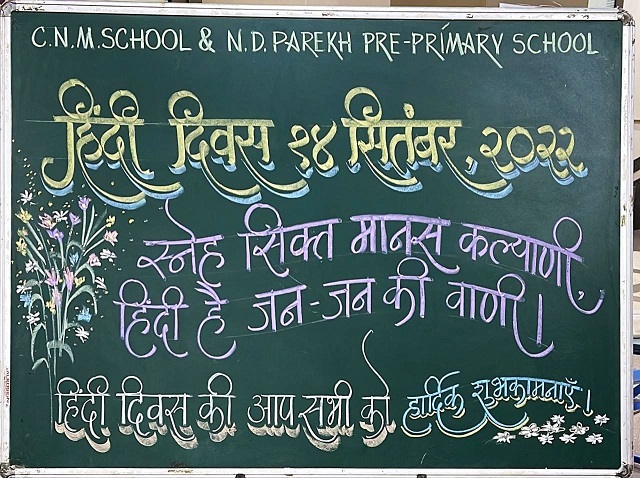 C.N.M. SCHOOL & N.D. PAREKH PRE-PRIMARY SCHOOL
हिंदी दिवस १४ सितंबर, २०२२
स्नेह सिक्त मानस कल्याणी,
हिंदी है जन-जन की वाणी।
हिंदी दिवस की आप सभी को हार्दिक शुभकामनाएँ।